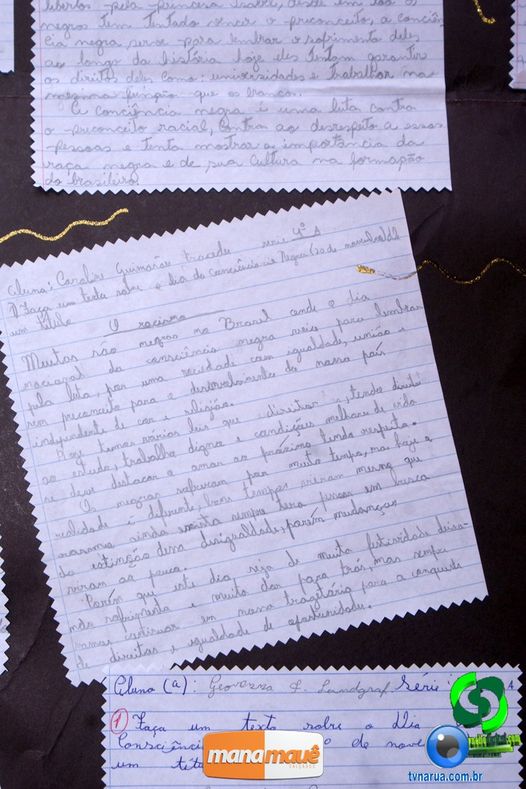 libertos pela princesa Isabel, desde então os
negros tem tentado vencer o preconceito, a conciên
cia negra serve para lembrar o sofrimento deles
ao longo da história hoje eles tentam garantir
os direitos deles como: universidades e trabalhar na
mesma função que os brancos.
A conciência negra é uma luta contra
o preconceito racial, contra ao desrespeito a essas
pessoas e tenta mostrar a importância da
raça negra e de sua cultura na formação
do brasileiro.
Aluna: Caroline Guimarães série 4º A
1) Faça um texto sobre o dia da Consciência Negra (20 de novembro) dê
um título
O racismo
Muitos são negros no Brasil onde o dia
nacional da consciência negra veio para lembrar
pela luta por uma sociedade com igualdade, união e
sem preconceito para o desenvolvimento do nosso país
independente de cor e religião.
Hoje temos várias leis que direitos tendo direito
ao estudo, trabalho digno e condições melhores de vida
se deve destacar o amar ao próximo tendo respeito.
Os negros sofreram por muito tempo, mas hoje a
realidade é diferente, bons tempos vieram mesmo que
racismo ainda exista sempre terá pessoas em busca
da extinção dessa desigualdade, porém mudanças
viram aos poucos.
Porém que este dia, seja de muita felicidade
mos sofrimento e muita dor para trás, mas sempre
vamos continuar em nossa trajetória para a conquista
de direitos e igualdade de oportunidades.
Aluno (a): Geovessa F. Landgraf Série 4
1) Faça um texto sobre o Dia
Consciência de nove
um tít
manamauê
CALÇADOS
tvnarua.com.br